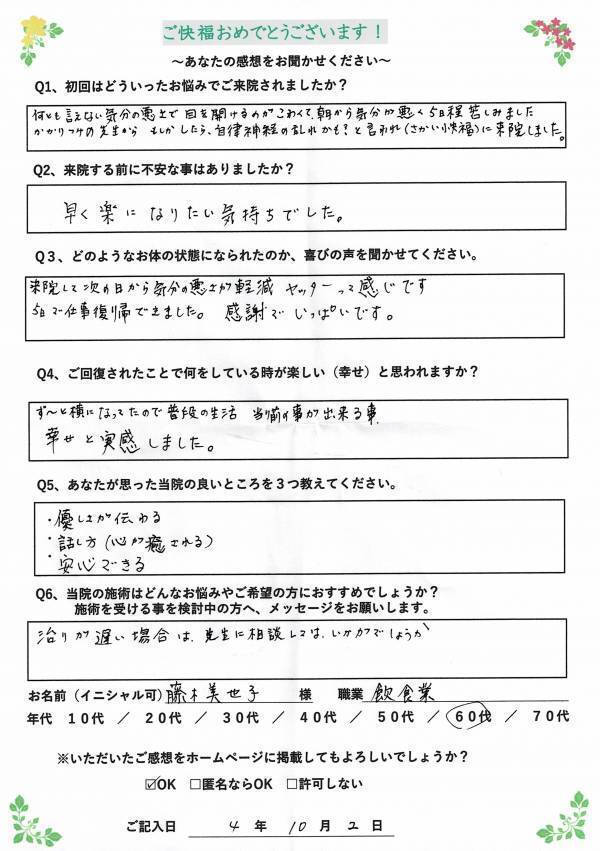 ご快福おめでとうございます！
～あなたの感想をお聞かせください～
Q1、初回はどういったお悩みでご来院されましたか？
何とも言えない気分の悪さで目を開けるのがこわくて、朝から気分が悪く5日程苦しみました
かかりつけの先生から もしかしたら、自律神経の乱れかも？と言われ（さかい快福）に来院しました。
Q2、来院する前に不安な事はありましたか？
早く楽になりたい気持ちでした。
Q３、どのようなお体の状態になられたのか、喜びの声を聞かせてください。
来院して次の日から気分の悪さが軽減 ヤッターって感じです
5日で仕事復帰できました。 感謝で いっぱいです。
Q4、ご回復されたことで何をしている時が楽しい（幸せ）と思われますか？
ず～と横になってたので普段の生活 当り前の事が出来る事、
幸せと実感しました。
Q5、あなたが思った当院の良いところを３つ教えてください。
・優しさが伝わる
・話し方（心が癒される）
・安心できる
Q6、当院の施術はどんなお悩みやご希望の方におすすめでしょうか？
施術を受ける事を検討中の方へ、メッセージをお願いします。
治りが遅い場合は、先生に相談しては、いかがでしょうか
お名前（イニシャル可）藤木美世子 様 職業 飲食業
年代 １０代 ／ ２０代 ／ ３０代 ／ ４０代 ／ ５０代 ／ ６０代 ／ ７０代
※いただいたご感想をホームページに掲載してもよろしいでしょうか？
☑OK □匿名ならOK □許可しない
ご記入日 4 年 10 月 2 日